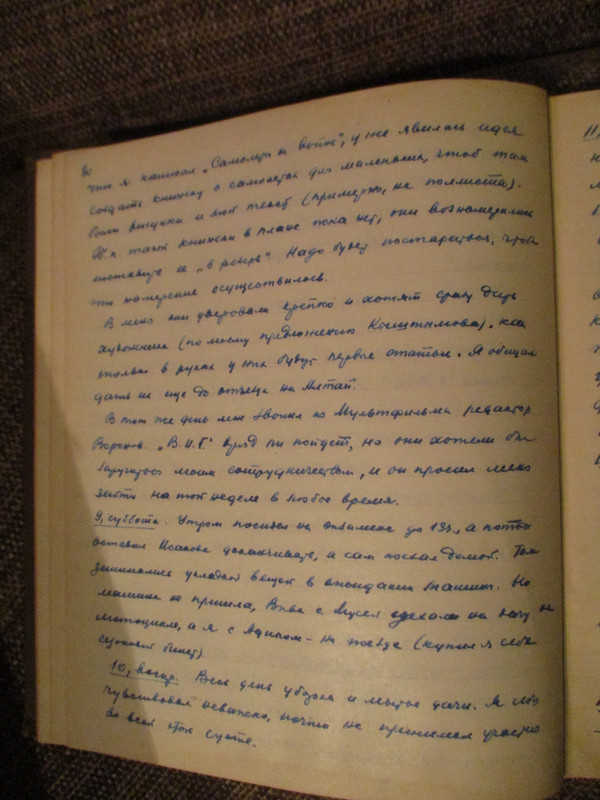 80
что я написал „Самолеты на войне", уже явилась идея
создать книжку о самолетах для маленьких, чтоб там
были рисунки и мой текст (примерно, на поллиста).
Т.к. такой книжки в плане пока нет, они вознамерились
поставить ее „в резерв". Надо будет постараться, чтобы
это намерение осуществилось.
В меня они уверовали крепко и хотят сразу дать
художника (по моему предложению Кыштымова), как
только в руках у них будут первые статьи. Я обещал
дать их еще до отъезда на Алтай.
В тот же день мне звонил из Мультфильма редактор
Воронов. „В.И.Г." вряд ли пойдет, но они хотели бы
заручиться моим сотрудничеством, и он просил меня
зайти на той неделе в любое время.
9, суббота. Утром посидел на экзамене до 13ч., а потом
оставил Исакова доканчивать, а сам поехал домой. Там
занимались укладкой вещей в ожидании машины. Но
машина не пришла, Вивa с Мусей уехали на дачу на
мотоцикле, а я с Адиком – на поезде (купил я себе
сезонный билет).
10, воскр. Весь день уборка и мытье дачи. Я себя
чувствовал неважно, почти не принимал участия
во всей этой суете.
11,